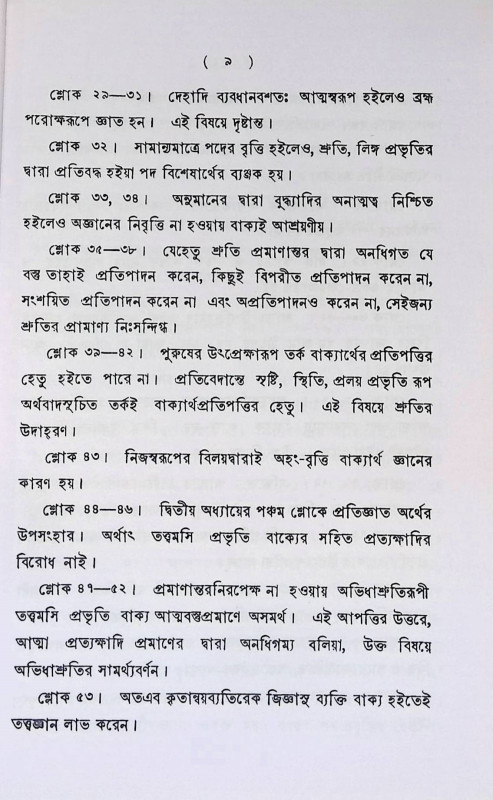 ( ৯ )
শ্লোক ২৯—৩১। দেহাদি ব্যবধানবশতঃ আত্মস্বরূপ হইলেও ব্রহ্ম
পরোক্ষরূপে জ্ঞাত হন। এই বিষয়ে দৃষ্টান্ত।
শ্লোক ৩২। সামান্যমাত্রে পদের বৃত্তি হইলেও, শ্রুতি, লিঙ্গ প্রভৃতির
দ্বারা প্রতিবদ্ধ হইয়া পদ বিশেষার্থের ব্যঞ্জক হয়।
শ্লোক ৩৩, ৩৪। অনুমানের দ্বারা বুদ্ধ্যাদির অনাত্মত্ব নিশ্চিত
হইলেও অজ্ঞানের নিবৃত্তি না হওয়ায় বাক্যই আশ্রয়ণীয়।
শ্লোক ৩৫—৩৮। যেহেতু শ্রুতি প্রমাণান্তর দ্বারা অনধিগত যে
বস্তু তাহাই প্রতিপাদন করেন, কিছুই বিপরীত প্রতিপাদন করেন না,
সংশয়িত প্রতিপাদন করেন না এবং অপ্রতিপাদনও করেন না, সেইজন্য
শ্রুতির প্রামাণ্য নিঃসন্দিগ্ধ।
শ্লোক ৩৯—৪২। পুরুষের উৎপ্রেক্ষারূপ তর্ক বাক্যার্থের প্রতিপত্তির
হেতু হইতে পারে না। প্রতিবেদান্তে সৃষ্টি, স্থিতি, প্রলয় প্রভৃতি রূপ
অর্থবাদসূচিত তর্কই বাক্যার্থপ্রতিপত্তির হেতু। এই বিষয়ে শ্রুতির
উদাহরণ।
শ্লোক ৪৩। নিজস্বরূপের বিলয়দ্বারাই অহং-বৃত্তি বাক্যার্থ জ্ঞানের
কারণ হয়।
শ্লোক ৪৪—৪৬। দ্বিতীয় অধ্যায়ের পঞ্চম শ্লোকে প্রতিজ্ঞাত অর্থের
উপসংহার। অর্থাৎ তত্ত্বমসি প্রভৃতি বাক্যের সহিত প্রত্যক্ষাদির
বিরোধ নাই।
শ্লোক ৪৭—৫২। প্রমাণান্তরনিরপেক্ষ না হওয়ায় অভিধাশ্রুতিরূপী
তত্ত্বমসি প্রভৃতি বাক্য আত্মবস্তুপ্রমাণে অসমর্থ। এই আপত্তির উত্তরে,
আত্মা প্রত্যক্ষাদি প্রমাণের দ্বারা অনধিগম্য বলিয়া, উক্ত বিষয়ে
অভিধাশ্রুতির সামর্থ্যবর্ণন।
শ্লোক ৫৩। অতএব কৃতান্বয়ব্যতিরেক জিজ্ঞাসু ব্যক্তি বাক্য হইতেই
তত্ত্বজ্ঞান লাভ করেন।